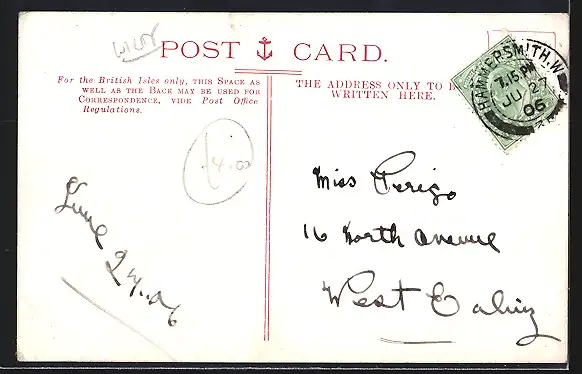 POST CARD.
For the British Isles only, THIS SPACE AS
WELL AS THE BACK MAY BE USED FOR
CORRESPONDENCE, VIDE Post Office
Regulations.
THE ADDRESS ONLY TO B
WRITTEN HERE.
HAMMERSMITH. W
7.15 PM
JU 27
06
4.00
June
27.06
Miss Perigo
16 North Avenue
West Ealing